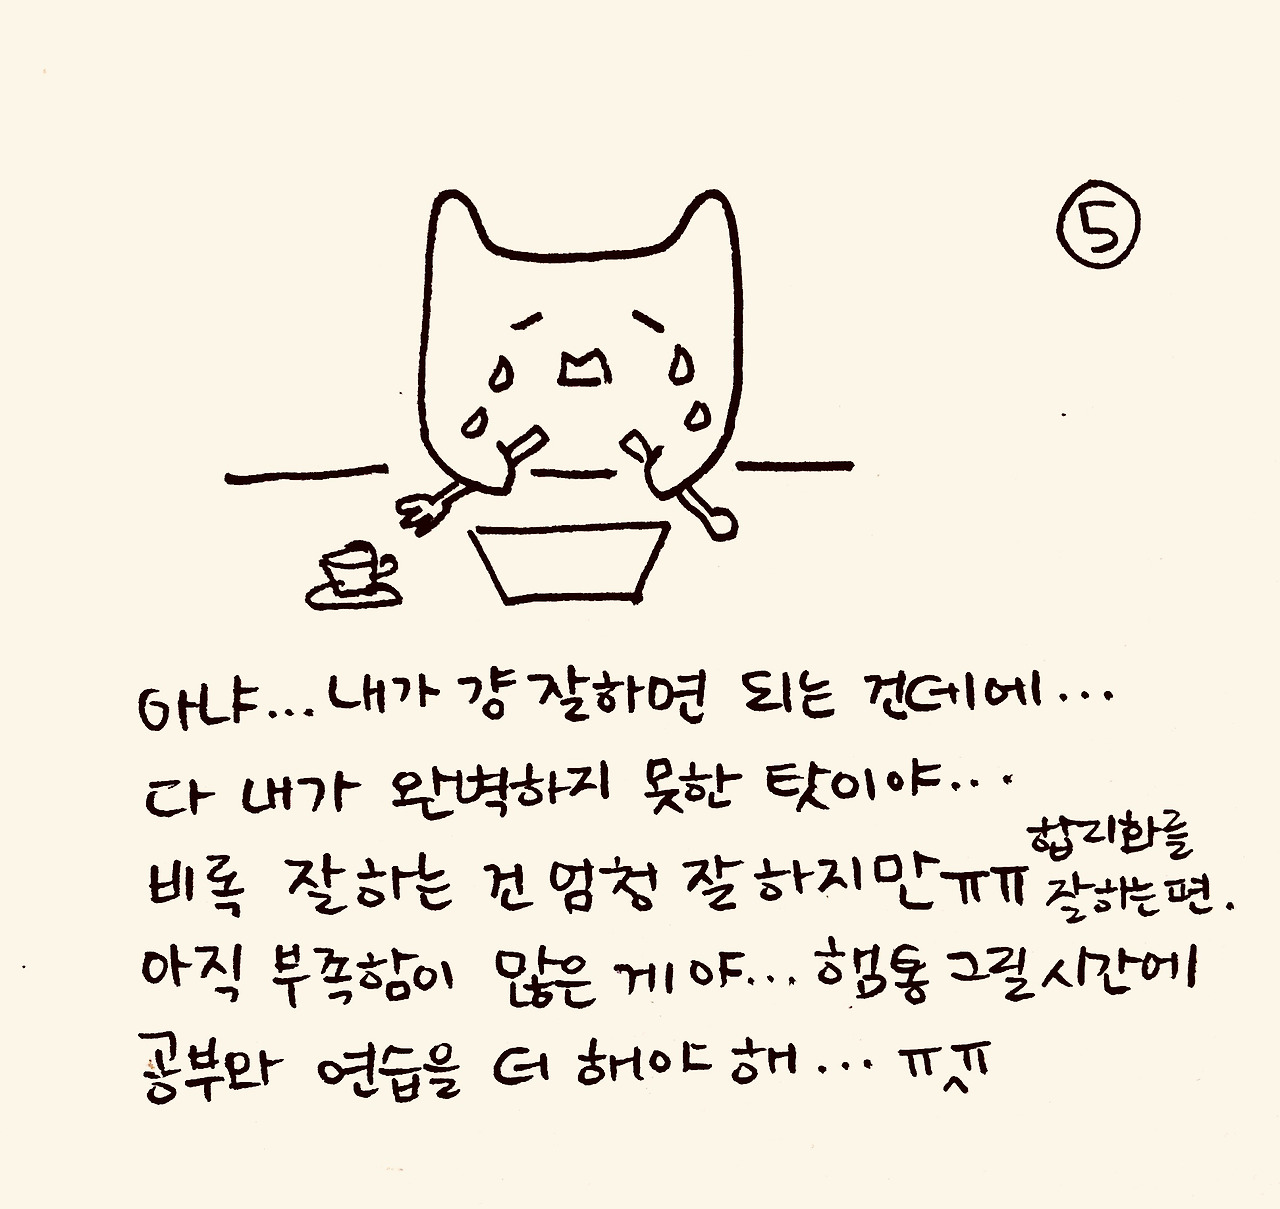 5
아냐... 내가 걍 잘하면 되는 건데에...
다 내가 완벽하지 못한 탓이야...
비록 잘하는 건 엄청 잘하지만ㅠㅠ
합리화를
잘하는 편.
아직 부족함이 많은 게야... 햄통 그릴 시간에
공부와 연습을 더 해야 해... ㅠㅅㅠ